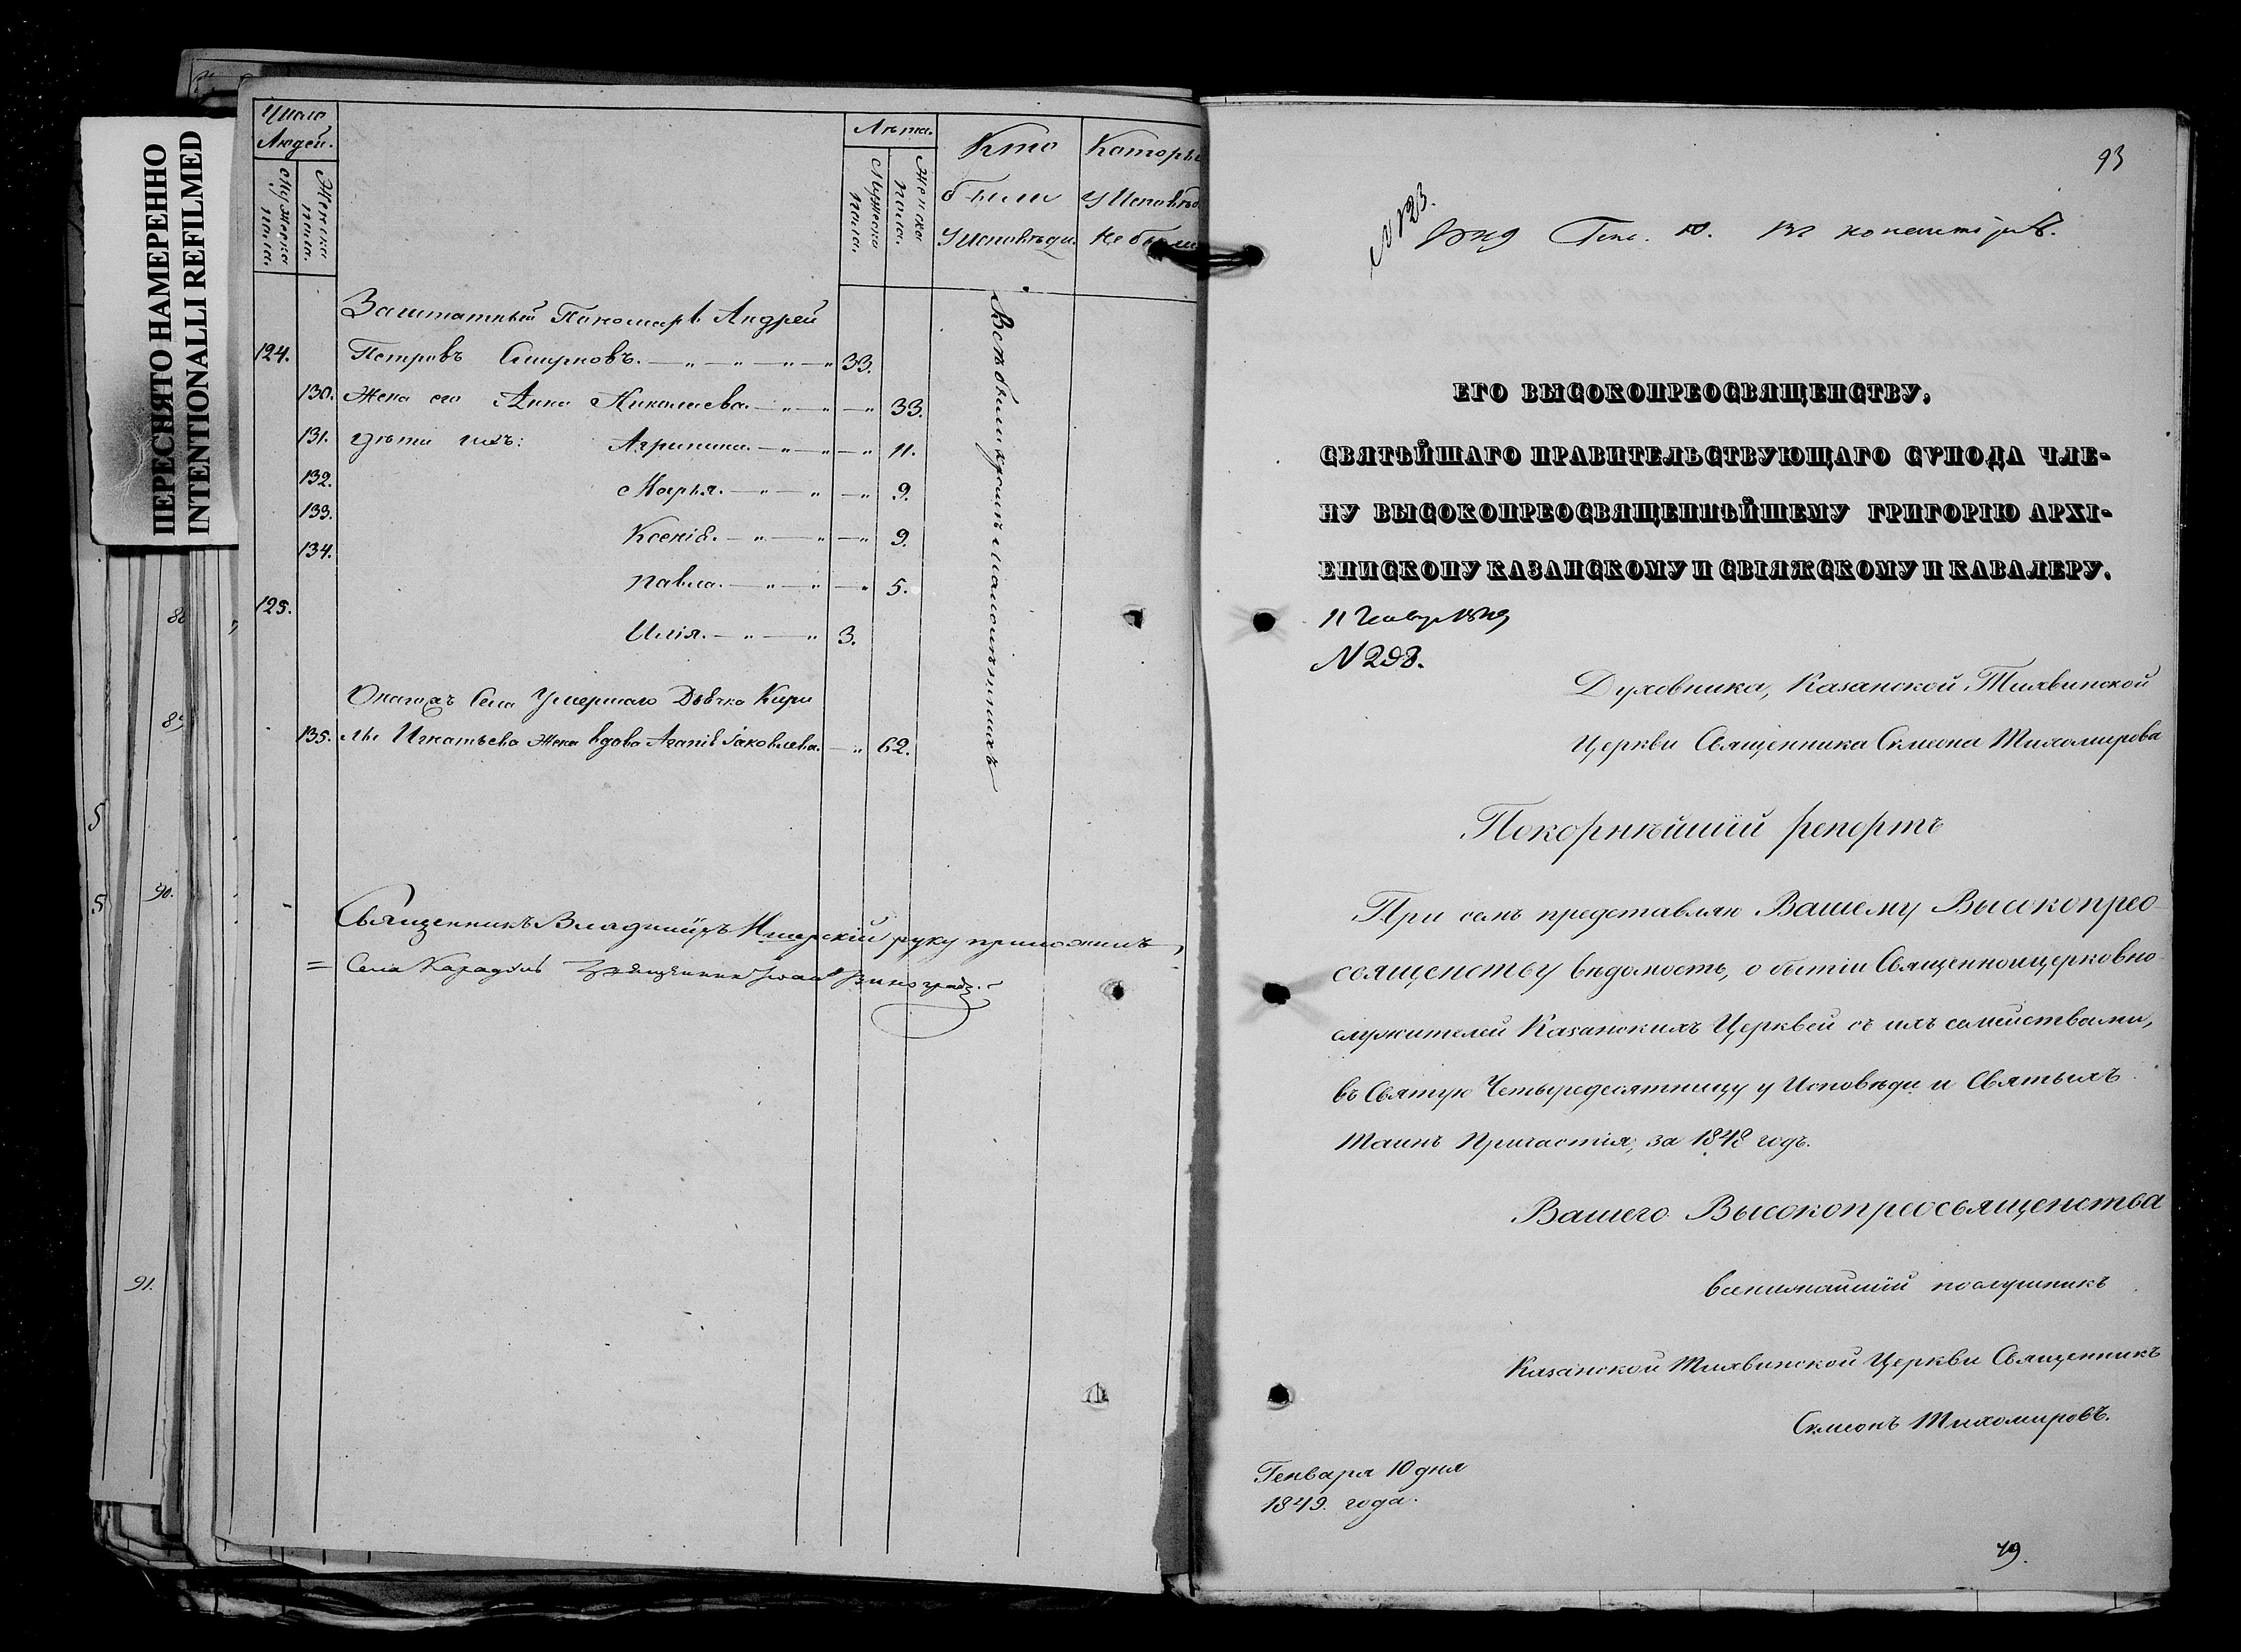 ПЕРЕСНЯТО НАМЕРЕННО
INTENTIONALLI REFILMED
Число
Людей.
Мужеска пола.
Женска пола.
Лѣта.
Мужеско пола.
Женско пола.
Кто
были
у Исповѣди.
Которы
у Исповѣд
не были
Заштатный Пономарь Андрей
124. Петровъ Смирновъ. 33.
130. Жена его Анна Николаева. 33.
131. дѣти ихъ: Агрипина. 11.
132. Марья. 9.
133. Ксенія. 9.
134. Павла. 5.
125. Илія. 3.
Села Умершаго Дьячка Кири
135. лы Игнатьева Жена вдова Агапія Іаковлева. 62.
Всѣ были кромѣ малолѣтнихъ
Священникъ Владиміръ руку приложилъ,
Села Священникъ Іоаннъ Виноградовъ
88
89
90.
91.
5
5
93
N 123.
1849 Ген. 10. Въ консисторію.
ЕГО ВЫСОКОПРЕОСВЯЩЕНСТВУ,
СВЯТѢЙШАГО ПРАВИТЕЛЬСТВУЮЩАГО СѴНОДА ЧЛЕ-
НУ ВЫСОКОПРЕОСВЯЩЕННѢЙШЕМУ ГРИГОРІЮ АРХІ-
ЕПИСКОПУ КАЗАНСКОМУ И СВІЯЖСКОМУ И КАВАЛЕРУ.
11 Генвар 1849
N 298.
Духовника, Казанской Тихвинской
Церкви Священника Симеона Тихомирова
Покорнѣйшій репортъ
При семъ представляю Вашему Высокопрео-
священству вѣдомость, о бытіи Священноицерковно-
служителей Казанскихъ Церквей съ ихъ семействами,
въ Святую Четыредесятницу у Исповѣди и Святыхъ
Таинъ Причастія, за 1848 годъ.
Вашего Высокопреосвященства
всенижайшій послушникъ
Казанской Тихвинской Церкви Священникъ
Симеонъ Тихомировъ.
Генваря 10 дня
1849. года.
49.